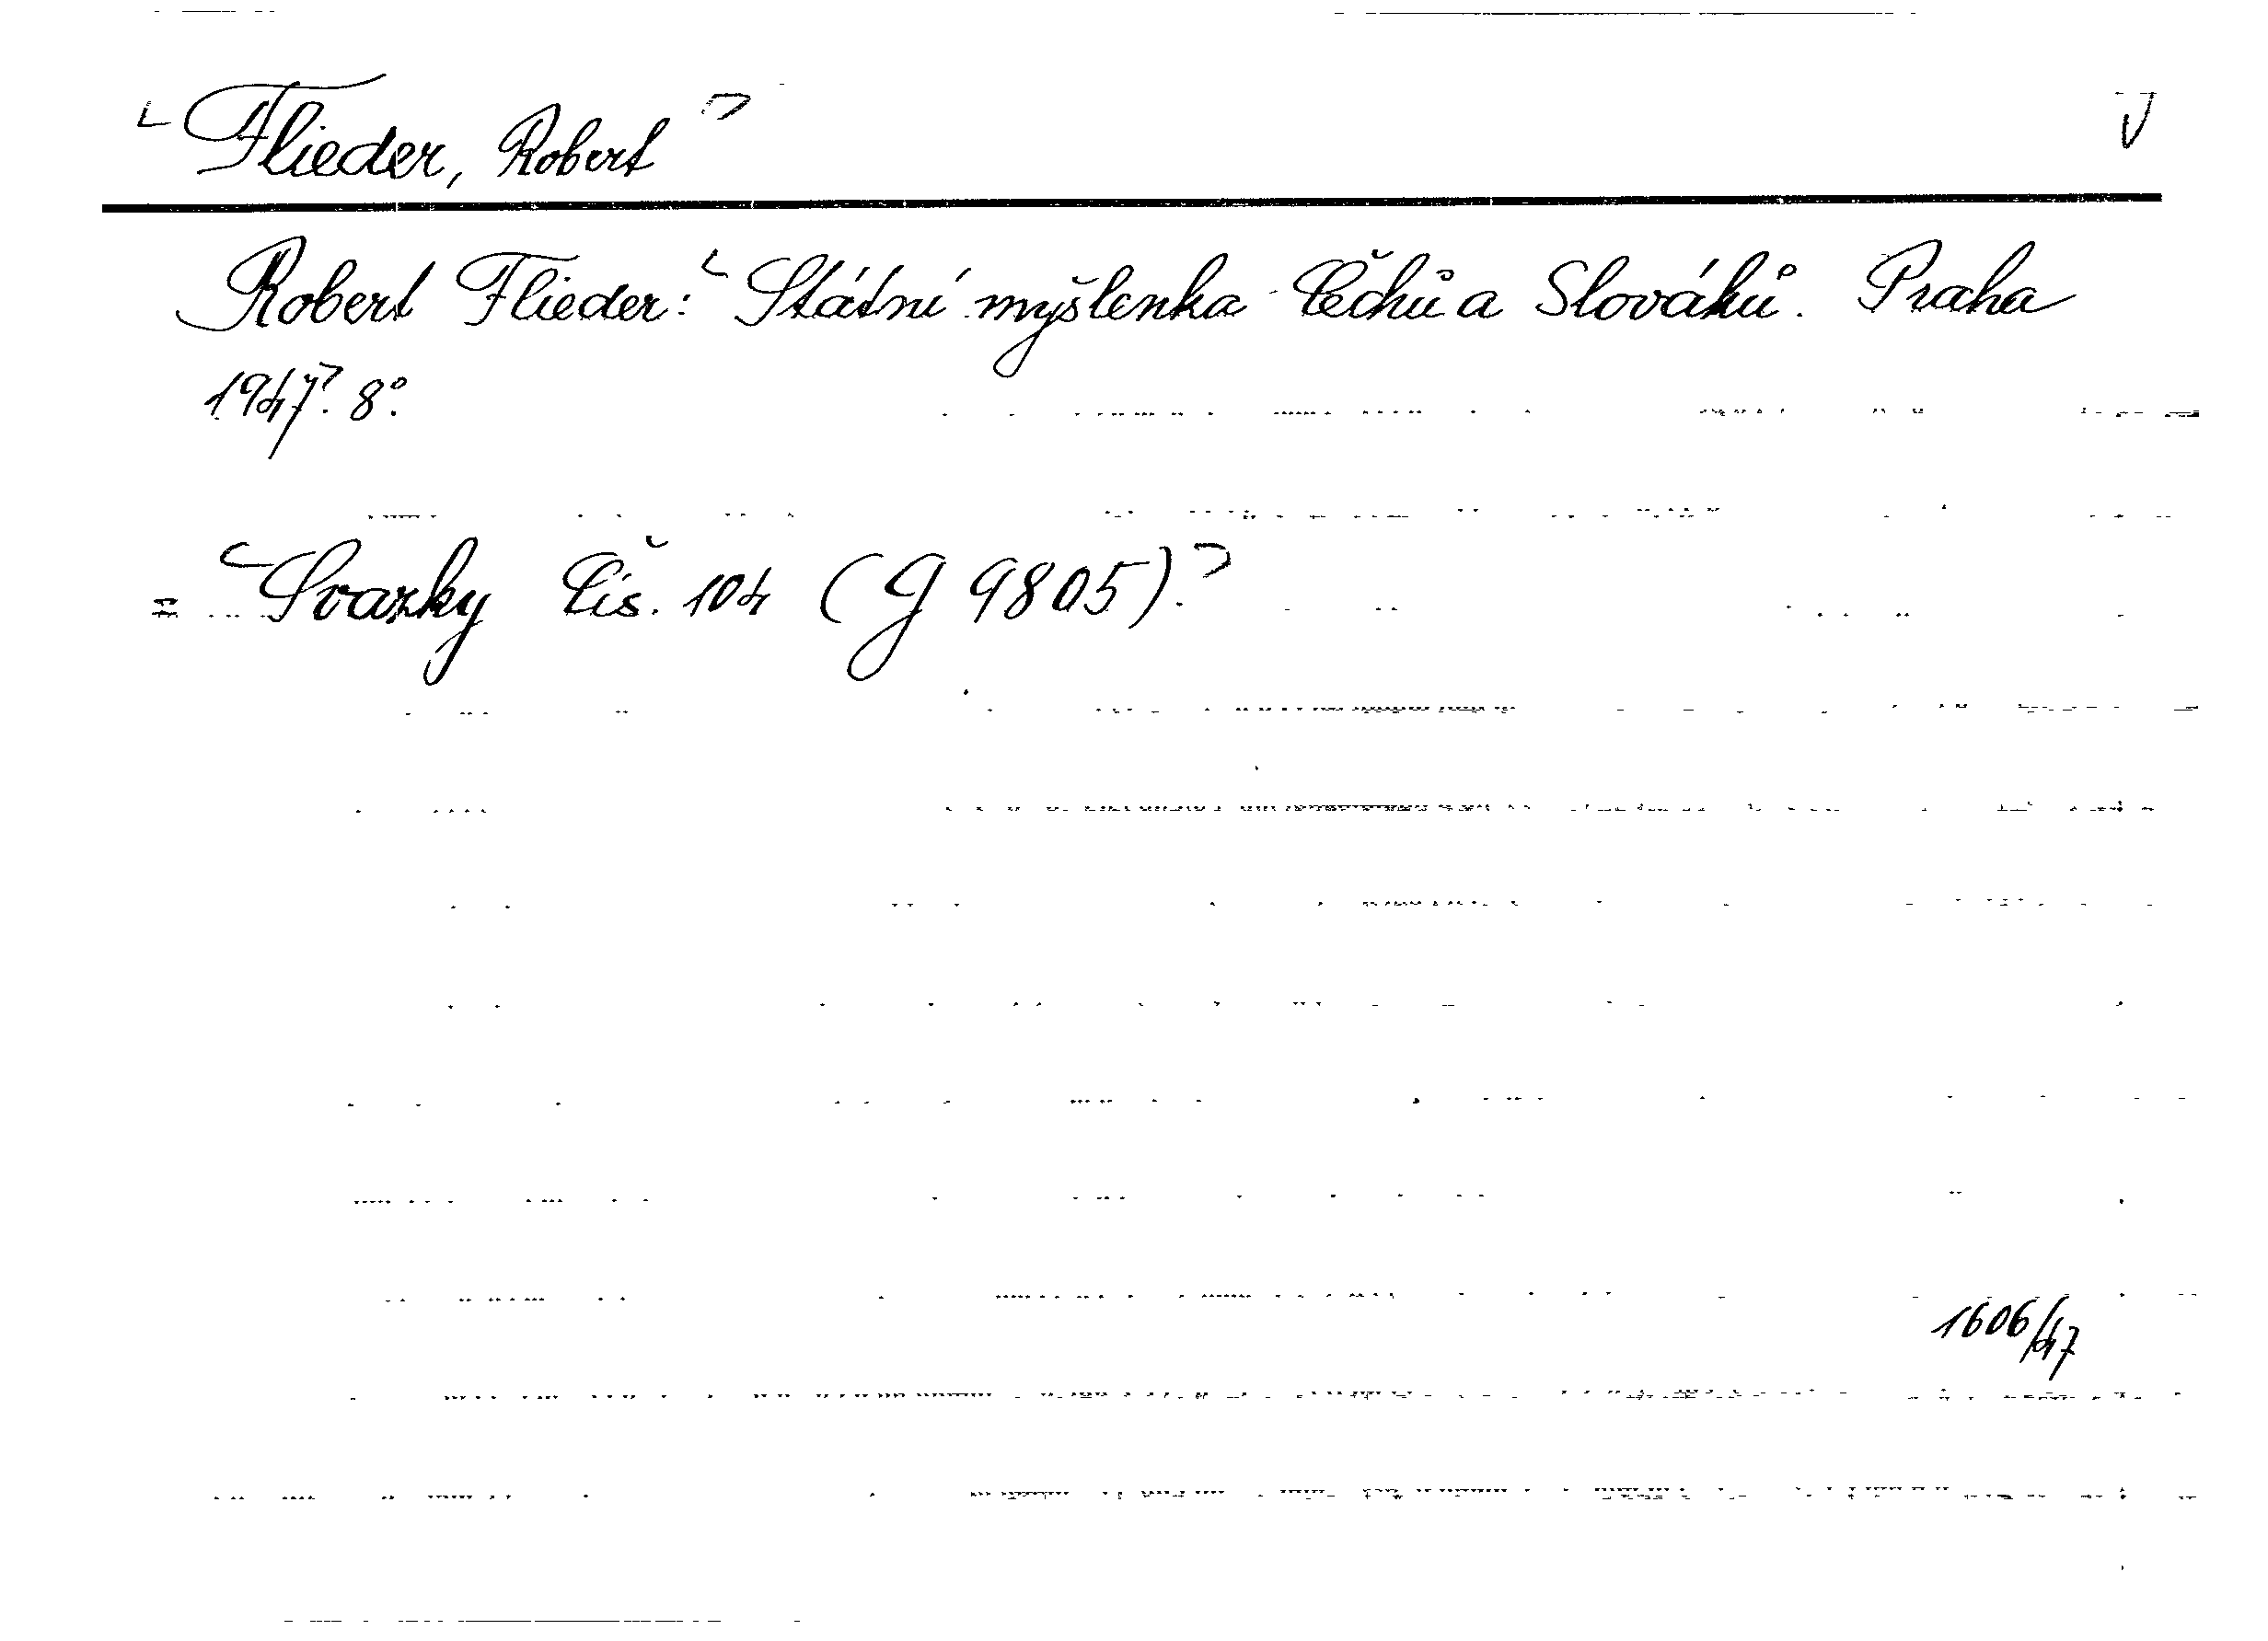 Flieder, Robert
Robert Flieder: Státní myšlenka Čechů a Slováků. Praha
1947. 8°.
= Svazky Čís. 104 (G 9805).
1606/47